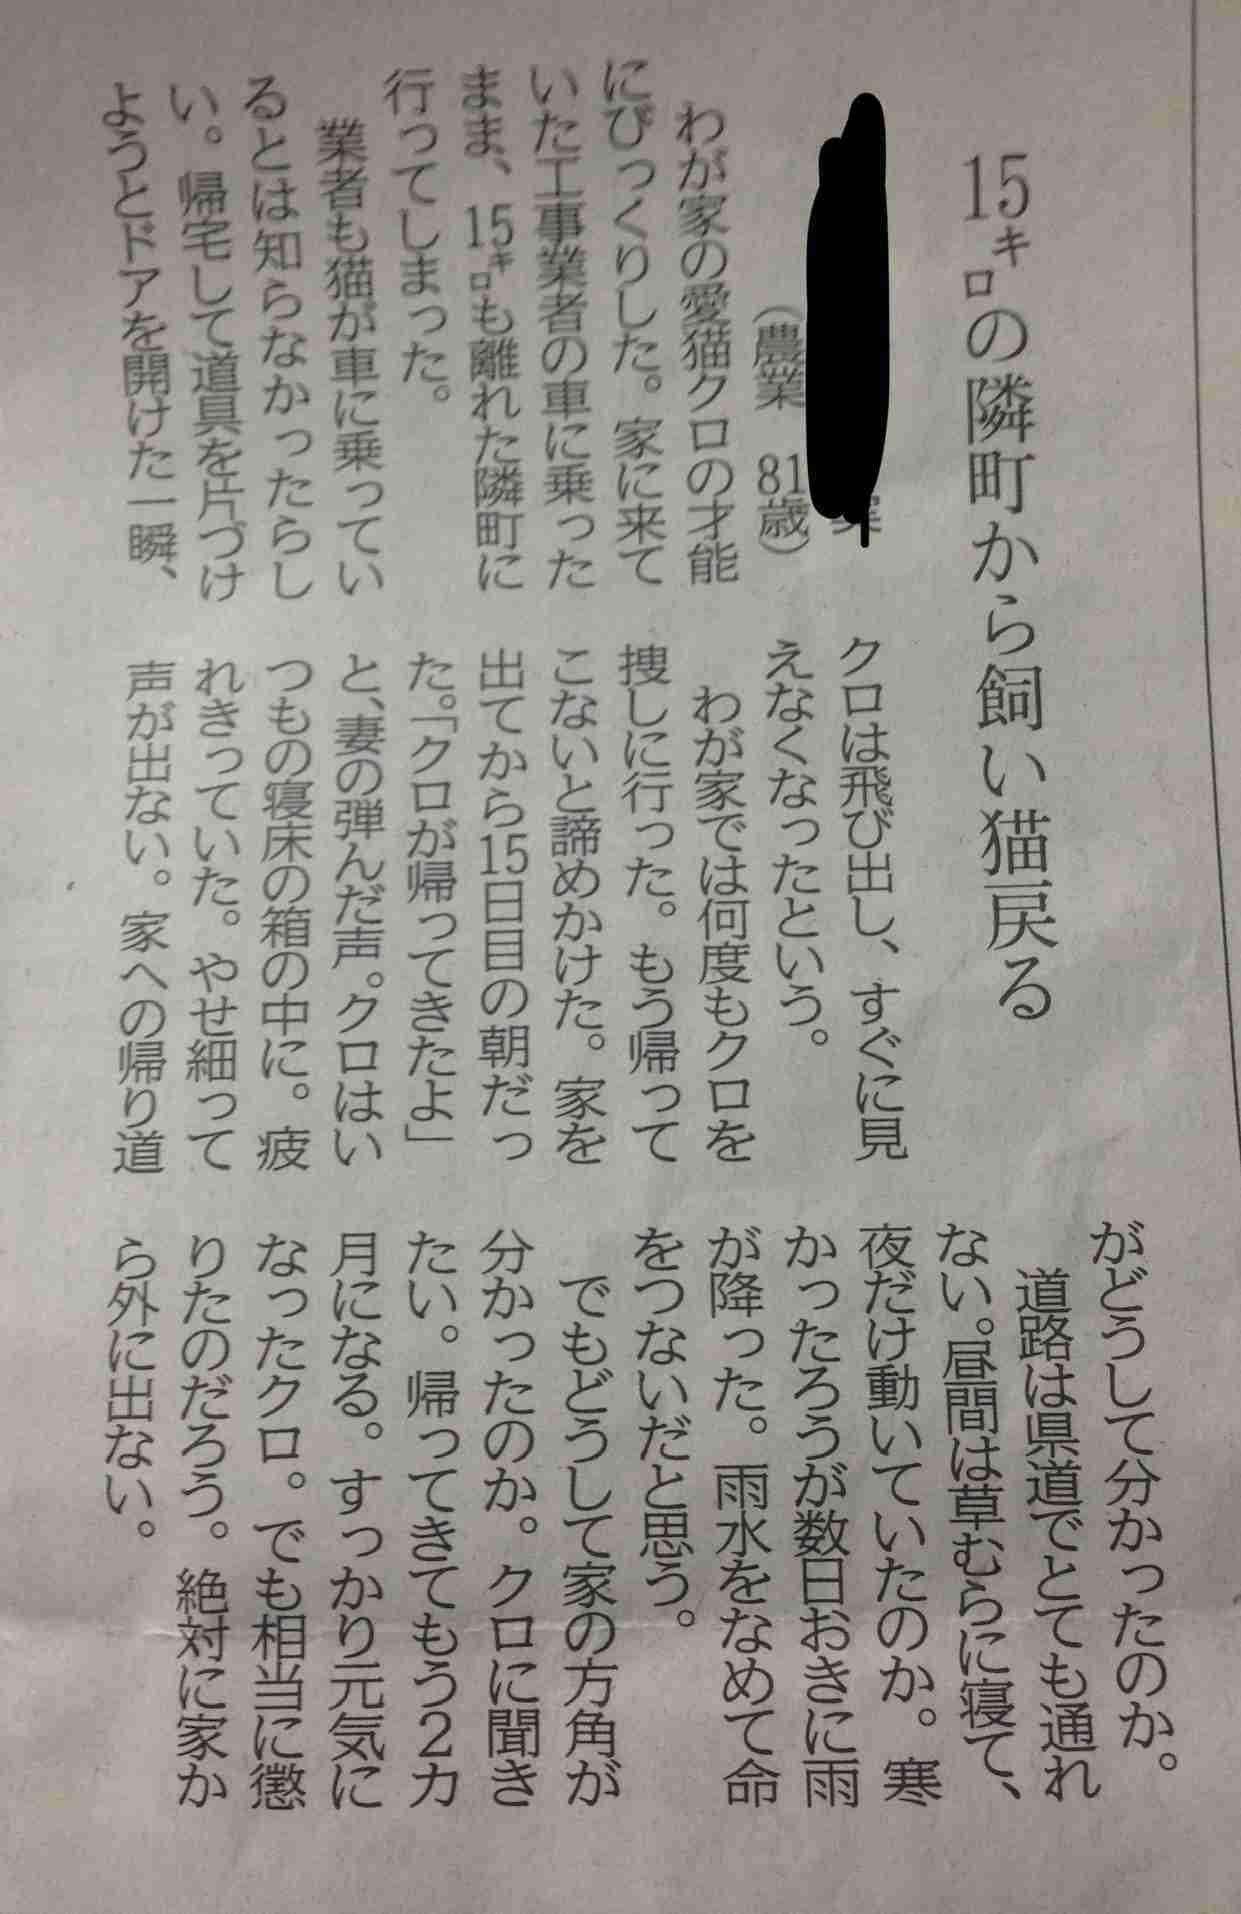 15㌔の隣町から飼い猫戻る
（農業　81歳）
わが家の愛猫クロの才能
にびっくりした。家に来て
いた工事業者の車に乗った
まま、15㌔も離れた隣町に
行ってしまった。
業者も猫が車に乗ってい
るとは知らなかったらし
い。帰宅して道具を片づけ
ようとドアを開けた一瞬、
クロは飛び出し、すぐに見
えなくなったという。
わが家では何度もクロを
捜しに行った。もう帰って
こないと諦めかけた。家を
出てから15日目の朝だっ
た。「クロが帰ってきたよ」
と、妻の弾んだ声。クロはい
つもの寝床の箱の中に。疲
れきっていた。やせ細って
声が出ない。家への帰り道
がどうして分かったのか。
道路は県道でとても通れ
ない。昼間は草むらに寝て、
夜だけ動いていたのか。寒
かったろうが数日おきに雨
が降った。雨水をなめて命
をつないだと思う。
でもどうして家の方角が
分かったのか。クロに聞き
たい。帰ってきてもう2カ
月になる。すっかり元気に
なったクロ。でも相当に懲
りたのだろう。絶対に家か
ら外に出ない。